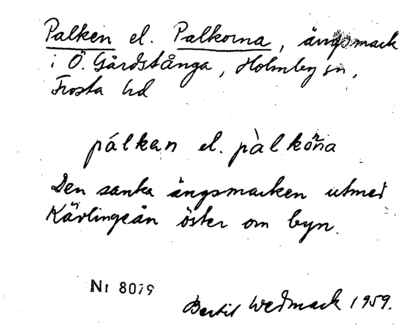 Palken el. Palkorna, ängsmark
i Ö. Gårdstånga, Holmby sn,
Frosta hd
pálkan el. pàlkoṙna
Den sanka ängsmarken utmed
Kävlingeån öster om byn.
Nr 8079
Bertil Wedmark 1959.